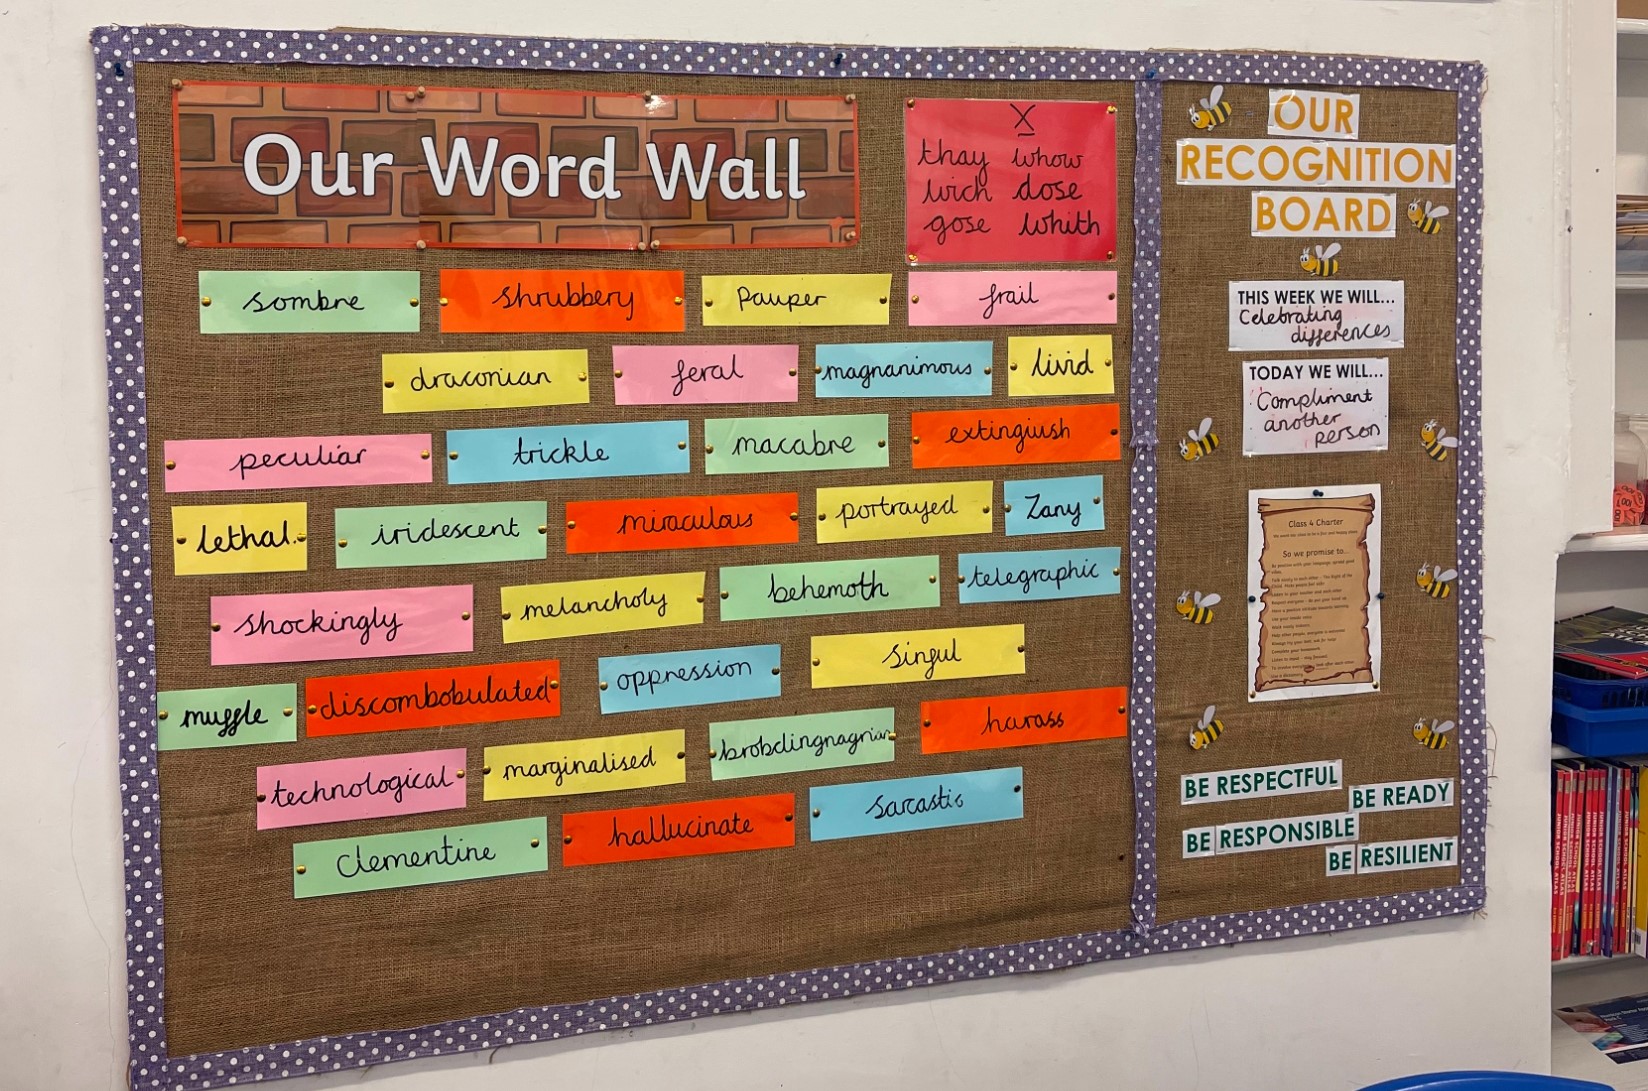 Our Word Wall
X
thay whow
wich dose
gose whith
sombre shrubbery pauper frail
draconian feral magnanimous livid
peculiar trickle macabre extingiush
lethal. iridescent miraculous portrayed Zany
shockingly melancholy behemoth telegraphic
muffle discombobulated oppression sinful
technological marginalised brobdingnagnian harass
Clementine hallucinate sarcastic
OUR
RECOGNITION
BOARD
THIS WEEK WE WILL...
Celebrating
differences
TODAY WE WILL...
Compliment
another
person
Class 4 Charter
So we promise to...
BE RESPECTFUL
BE READY
BE RESPONSIBLE
BE RESILIENT
JUNIOR SCHOOL ATLAS